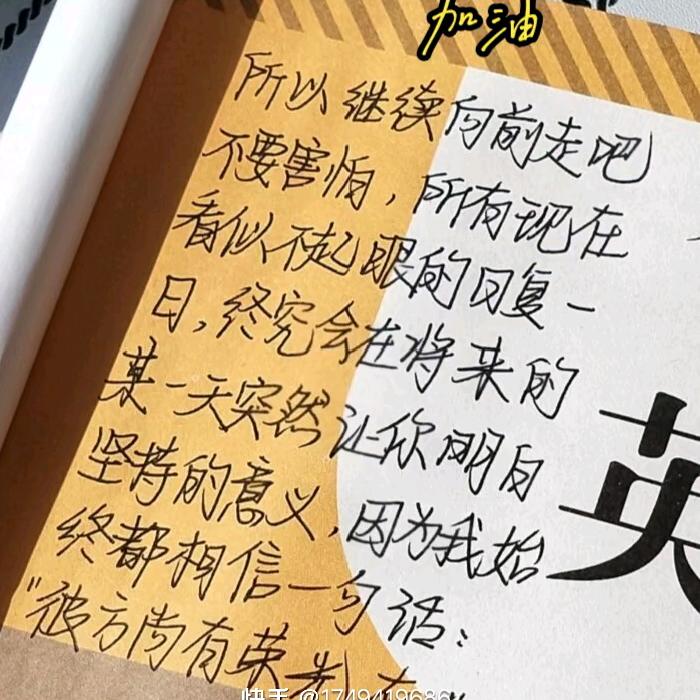 加油
所以继续向前走吧
不要害怕，所有现在
看似不起眼的日复一
日，终究会在将来的
某一天突然让你明白
坚持的意义，因为我始
终都相信一句话：
"彼方尚有荣光在"
英
快手 @1749419686